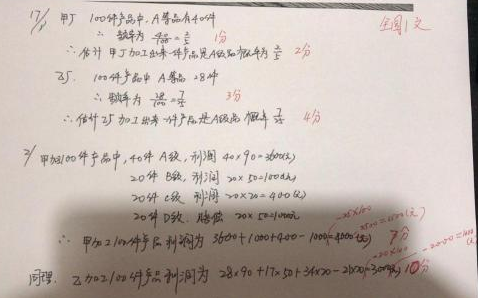 17/ 甲厂 100件产品中, A等品有40件 全国1文
∴ 频率为 40/100 = 2/5 1分
∴ 估计甲厂加工出来一件产品是A级品概率为 2/5 2分
乙厂. 100件产品中 A等品 28件
∴ 频率为 28/100 = 7/25 3分
∴ 估计乙厂加工出来一件产品是A级品概率 4分
2/ 甲加工100件产品中, 40件 A级, 利润 40×90=3600(元)
20件 B级, 利润 20×50=1000元
20件 C级 利润 20×20=400(元)
20件 D级. 赔偿 20×50=1000元
∴ 甲加工100件产品利润为 3600+1000+400-1000 7分
同理. 乙加工100件产品利润为 28×90+17×50+34×20 10分